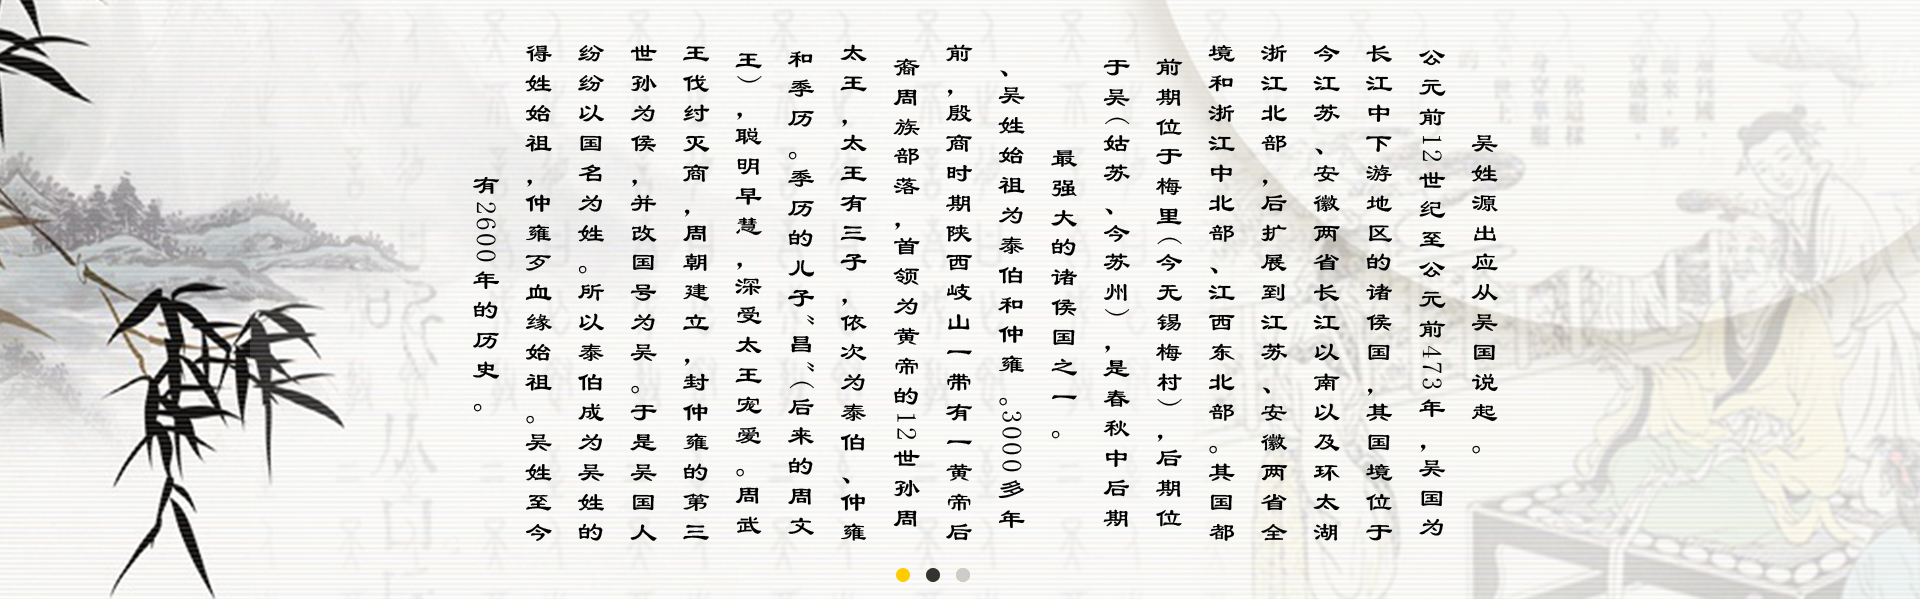 吴姓源出应从吴国说起。
公元前12世纪至公元前473年，吴国为
长江中下游地区的诸侯国，其国境位于
今江苏、安徽两省长江以南以及环太湖
浙江北部，后扩展到江苏、安徽两省全
境和浙江中北部、江西东北部。其国都
前期位于梅里（今无锡梅村），后期位
于吴（姑苏、今苏州），是春秋中后期
最强大的诸侯国之一。
、吴姓始祖为泰伯和仲雍。3000多年
前，殷商时期陕西岐山一带有一黄帝后
裔周族部落，首领为黄帝的12世孙周
太王，太王有三子，依次为泰伯、仲雍
和季历。季历的儿子“昌”（后来的周文
王），聪明早慧，深受太王宠爱。周武
王伐纣灭商，周朝建立，封仲雍的第三
世孙为侯，并改国号为吴。于是吴国人
纷纷以国名为姓。所以泰伯成为吴姓的
得姓始祖，仲雍歹血缘始祖。吴姓至今
有2600年的历史。